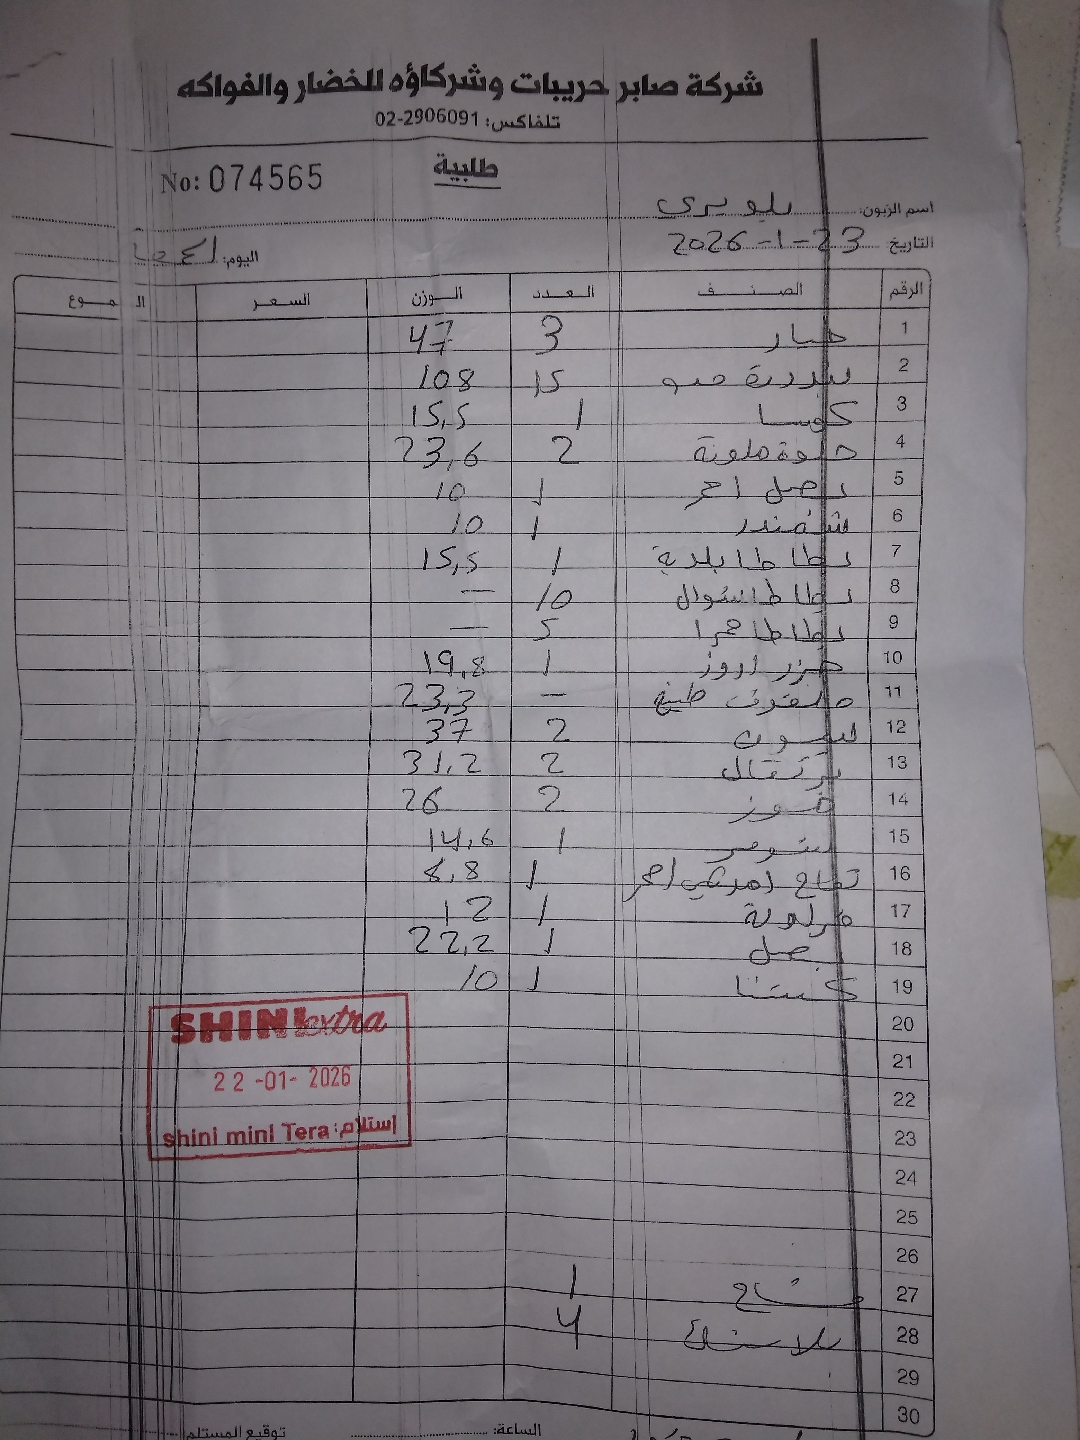 شركة صابر حريبات وشركاؤه للخضار والفواكه
تلفاكس: 02-2906091
طلبية
No: 074565
اسم الزبون:
التاريخ 23-1-2026
اليوم:
الرقم الصنف العدد الوزن السعر
1 خيار 3 47
2 بندورة 15 108
3 كوسا 1 15,5
4 حلوة ملونة 2 23,6
5 بصل احمر 1 10
6 شمندر 1 10
7 بطاطا بلدية 1 15,5
8 بطاطا شوال 10 —
9 بطاطا حمرا 5 —
10 جزر 1 19,8
11 ملفوف طبيخ — 23,3
12 ليمون 2 37
13 برتقال 2 31,2
14 موز 2 26
15 شومر 1 14,6
16 تفاح امريكي احمر 1 8,8
17 فراولة 1 12
18 بصل 1 22,2
19 كستنا 1 10
20
21
22
23
24
25
26
27 1
28 بلاستك 4
29
30
SHINI extra
22-01-2026
shini mini Tera إستلام:
الساعة: توقيع المستلم